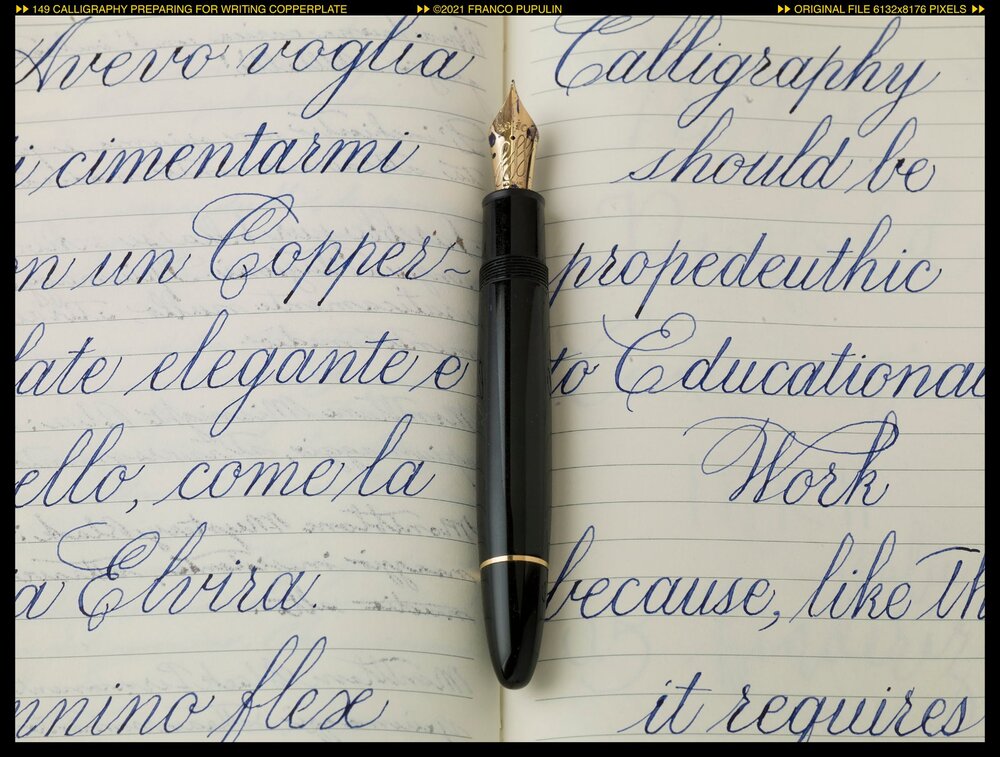 149 CALLIGRAPHY PREPARING FOR WRITING COPPERPLATE
©2021 FRANCO PUPULIN
ORIGINAL FILE 6132x8176 PIXELS
Avevo voglia
i cimentarmi
n un Copper-
late elegante e
ello, come la
a Elvira.
nnino flex
Calligraphy
should be
propedeuthic
to Educational
Work
because, like Th
it requires